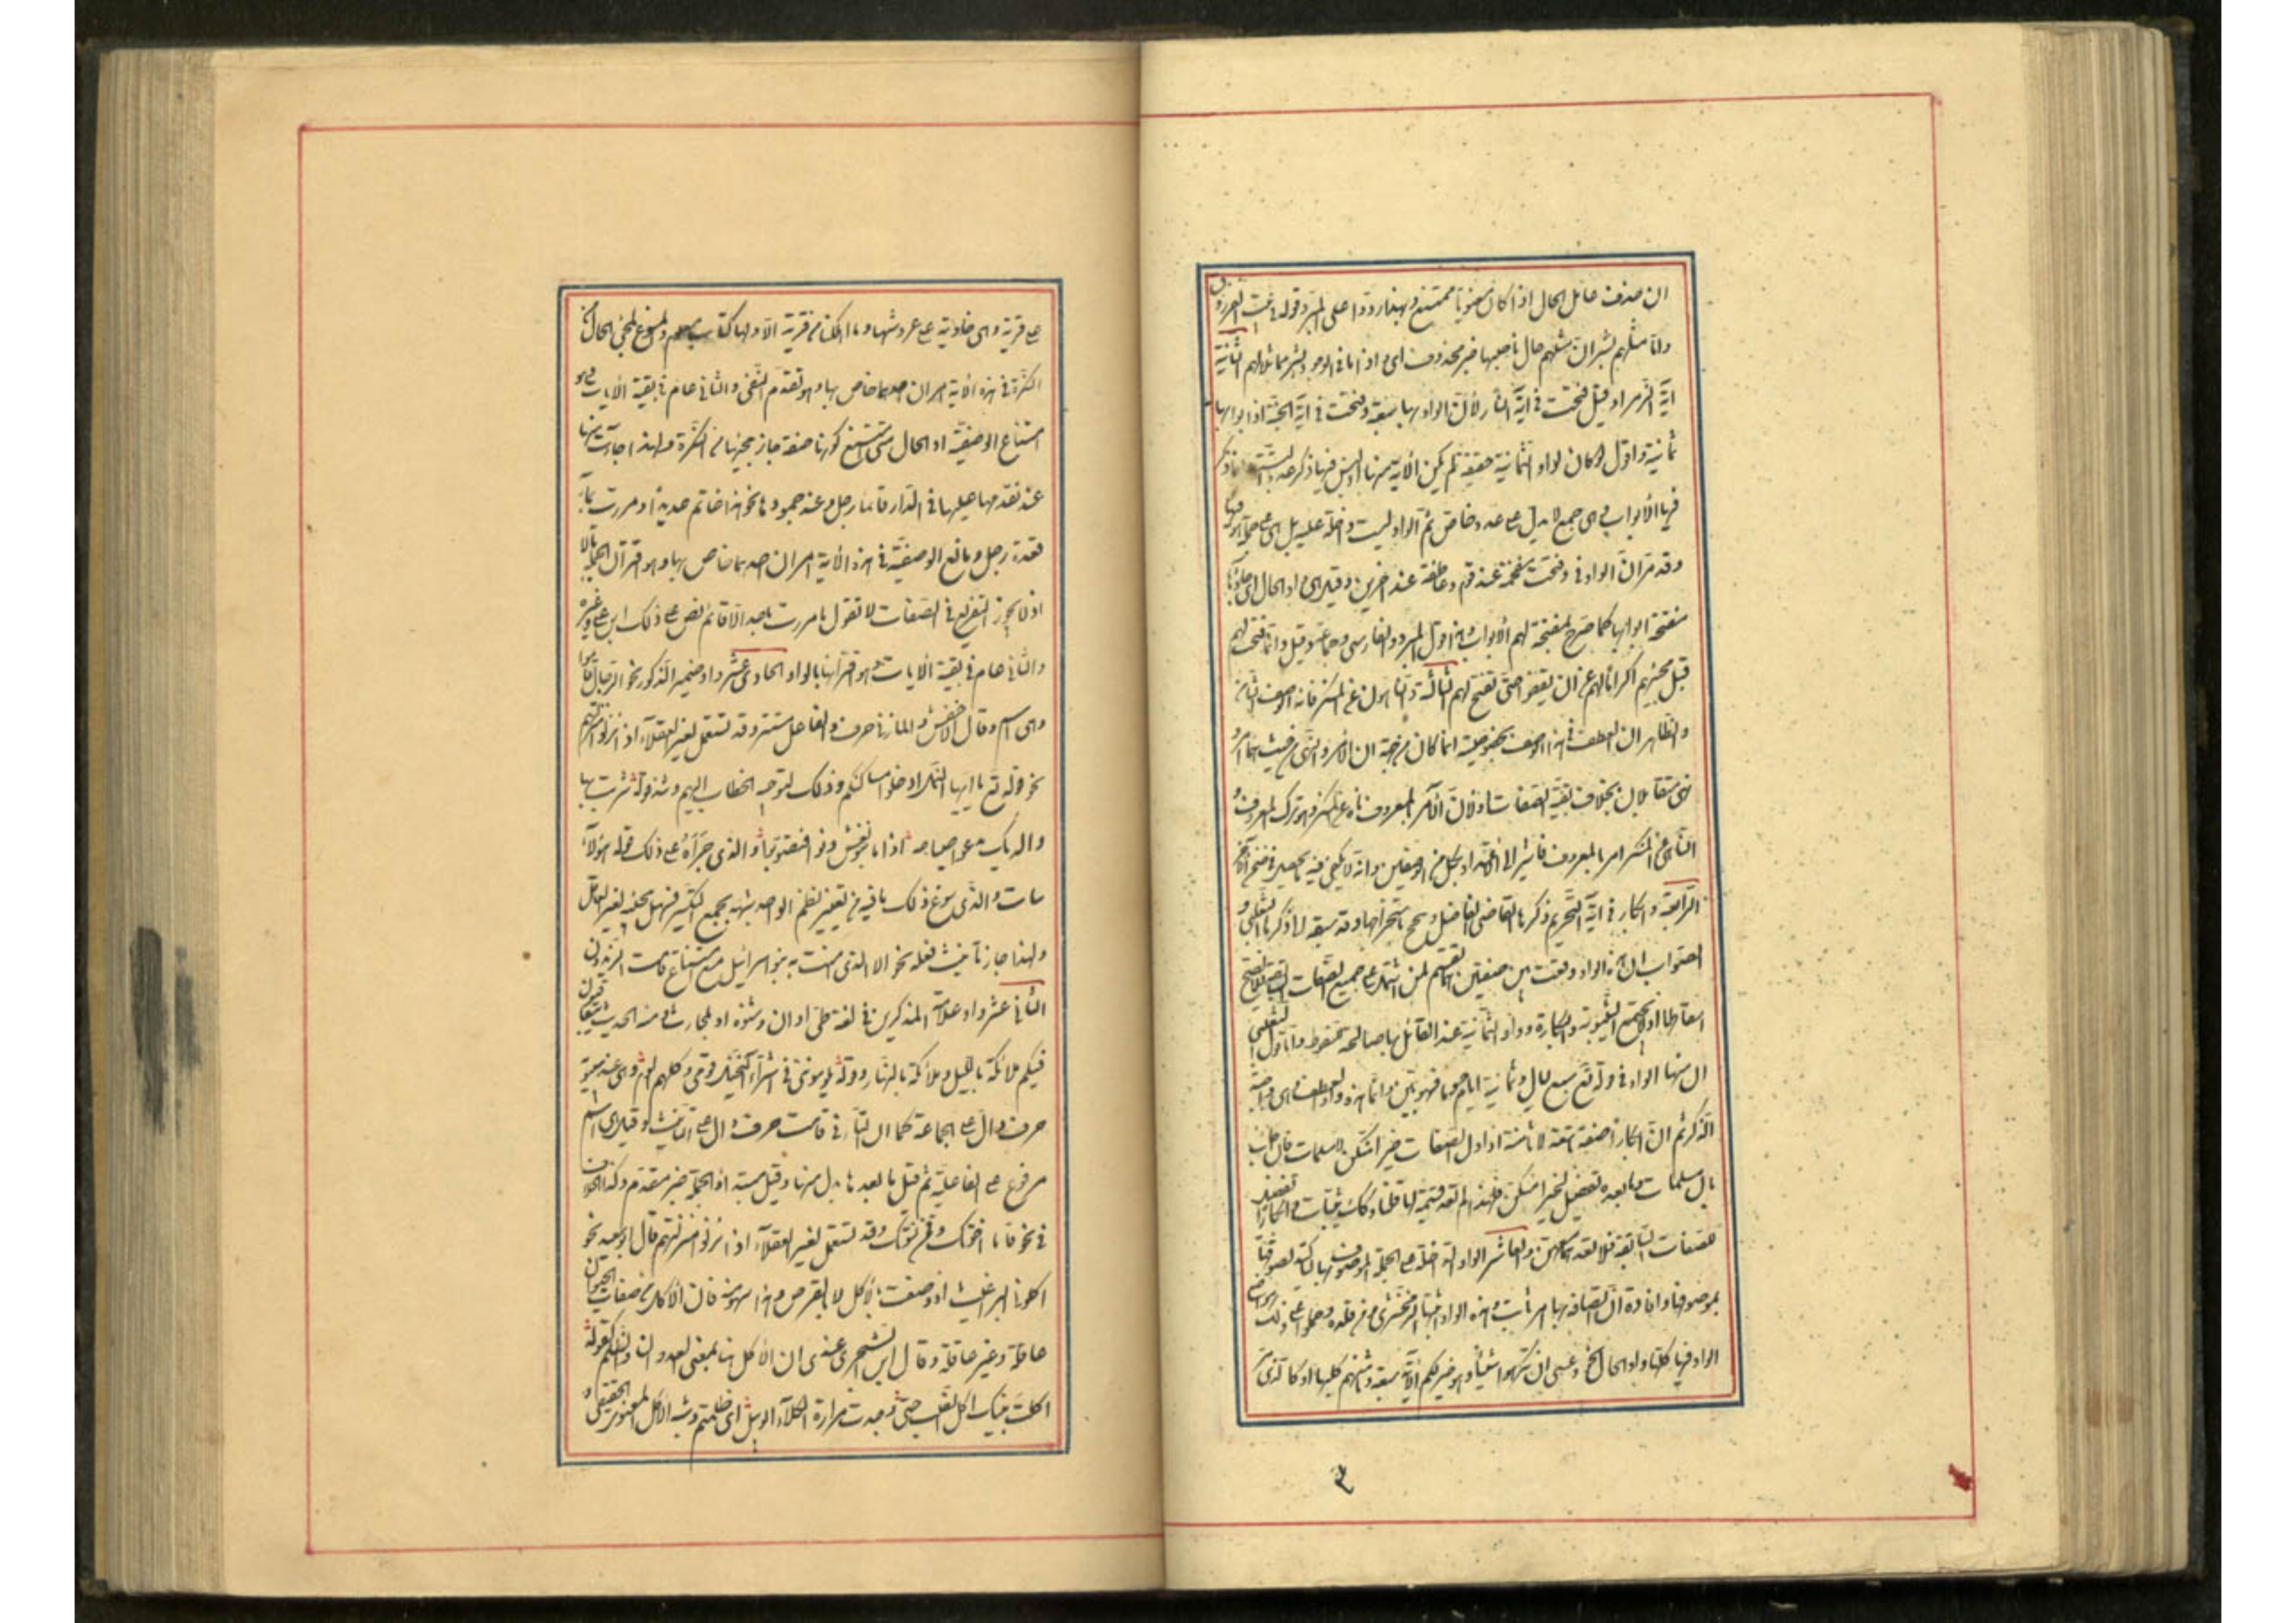 ان حذف عامل الحال اذا كان معنويا ممتنع وبهذا ردوا على المبرد قوله في بيت الفرزدق
واذ ما مثلهم بشر ان مثلهم حال ناصبها خبر محذوف اى واذ ما في الوجود بشر مماثلا لهم الثانية
آية الزمر اذ قيل فتحت في آية النار لأن ابوابها سبعة وفتحت في آية الجنة اذ ابوابها
ثمانية واقول لو كان لواو الثمانية حقيقة لم يكن الآية منها اذ ليس فيها ذكر عدد البتة وانما ذكر
فيها الأبواب وهى جمع لا يدل على عدد خاص ثم الواو ليست داخلة عليه بل على جملة هو فيها
وقد مر ان الواو في وفتحت مقحمة عند قوم وعاطفة عند آخرين وقيل هى واو الحال اى جاؤها
مفتحة ابوابها كما صرح بمفتحة لهم الأبواب وهذا قول المبرد والفارسى وجماعة وقيل وانما فتحت لهم
قبل مجيئهم اكراما لهم عن ان يقفوا حتى تفتح لهم الثالثة والناهون عن المنكر فانه الوصف الثامن
والظاهر ان العطف في هذا الوصف بخصوصه انما كان من جهة ان الأمر والنهى من حيث هما امر و
نهى متقابلان بخلاف بقية الصفات او لان الآمر بالمعروف ناه عن المنكر وهو ترك المعروف و
الناهى عن المنكر امر بالمعروف فاشير الى الاعتداد بكل من الوصفين وانه لا يكفى فيه بما يحصل في ضمن الآخر
الرابعة وابكارا في آية التحريم ذكرها القاضى الفاضل وتبجح باستخراجها وقد سبقه الى ذكرها الثعلبى و
الصواب ان هذه الواو وقعت بين صفتين هما تقسيم لمن اشتمل على جميع الصفات السابقة فلا يصح
اسقاطها اذ لا تجتمع الثيوبة والبكارة وواو الثمانية عند القائل بها صالحة للسقوط واما قول الثعلبى
ان منها الواو في قوله تع سبع ليال وثمانية ايام حسوما فسهو بين وانما هذه واو العطف وهى واجبة
الذكر ثم ان ابكارا صفة تاسعة لا ثامنة اذ اول الصفات خيرا منكن لا مسلمات فان اجاب
بان مسلمات وما بعده تفصيل لخيرا منكن فلهذا لم تعد قسيمة لها قلنا وكذلك ثيبات وابكارا تفصيل
للصفات السابقة فلا نعدهما معهن والعاشر الواو الداخلة على الجملة الموصوف بها لتأكيد لصوقها
بموصوفها وافادة ان اتصافه بها امر ثابت وهذه الواو اثبتها الزمخشرى ومن قلده وحملوا على ذلك مواضع
الواو فيها كلها واو الحال نحو وعسى ان تكرهوا شيئا وهو خير لكم الآية سبعة وثامنهم كلبهم او كالذى مر
٣
على قرية وهى خاوية على عروشها وما اهلكنا من قرية الا ولها كتاب معلوم والمسوغ لمجئ الحال من
النكرة في هذه الآية امران احدهما خاص بها وهو تقدم النفى والثانى عام في بقية الآيات وهو
امتناع الوصفية اذ الحال متى امتنع كونها صفة جاز مجيئها من النكرة ولهذا جاءت منها
عند تقدمها عليها نحو في الدار قائما رجل وعند جمودها نحو هذا خاتم حديدا ومررت بماء
قعدة رجل ومانع الوصفية في هذه الآية امران احدهما خاص بها وهو اقتران الجملة بالا
اذ لا يجوز التفريغ في الصفات لا تقول ما مررت باحد الا قائم نص على ذلك ابو على وغيره
والثانى عام في بقية الآيات وهو اقترانها بالواو الحادى عشر واو ضمير الذكور نحو الرجال قاموا
وهى اسم وقال الاخفش والمازنى حرف والفاعل مستتر وقد تستعمل لغير العقلاء اذا نزلوا منزلتهم
نحو قوله تع يا ايها النمل ادخلوا مساكنكم وذلك لتوجيه الخطاب اليهم وشذ قوله شربت بها
والديك يدعو صباحه اذا ما بنو نعش دنوا فتصوبوا والذى جرأه على ذلك قوله بنو لا
بنات والذى سوغ ذلك ما فيه من تغيير نظم الواحد شبهه بجمع التكسير فسهل مجيئه لغير العاقل
ولهذا جاز تأنيث فعله نحو الا الذى امنت به بنو اسرائيل مع امتناع قامت الزيدون
الثانى عشر واو علامة المذكرين في لغة طئ او ازد شنوءة او بلحارث ومنه الحديث يتعاقبون
فيكم ملائكة بالليل وملائكة بالنهار وقوله يلوموننى في اشتراء النخيل قومى وكلهم الوم وهى عند سيبويه
حرف دال على الجماعة كما ان التاء في قامت حرف دال على التأنيث وقيل هى اسم
مرفوع على الفاعلية ثم قيل ما بعدها بدل منها وقيل مبتدا والجملة خبر مقدم وكذا الخلاف
في نحو قاما اخواك وقمن نسوتك وقد تستعمل لغير العقلاء اذا نزلوا منزلتهم قال ابو سعيد نحو
اكلونى البراغيث اذ وصفت بالأكل لا بالقرص وهذا سهو منه فان الأكل من صفات الحيوان
عاقلة وغير عاقلة وقال ابن الشجرى عندى ان الأكل هنا بمعنى العدوان والظلم كقوله
اكلت بنيك اكل الضب حتى وجدت مرارة الكلاء الوبيل اى ظلمتهم وشبه الأكل المعنوى بالحقيقى و